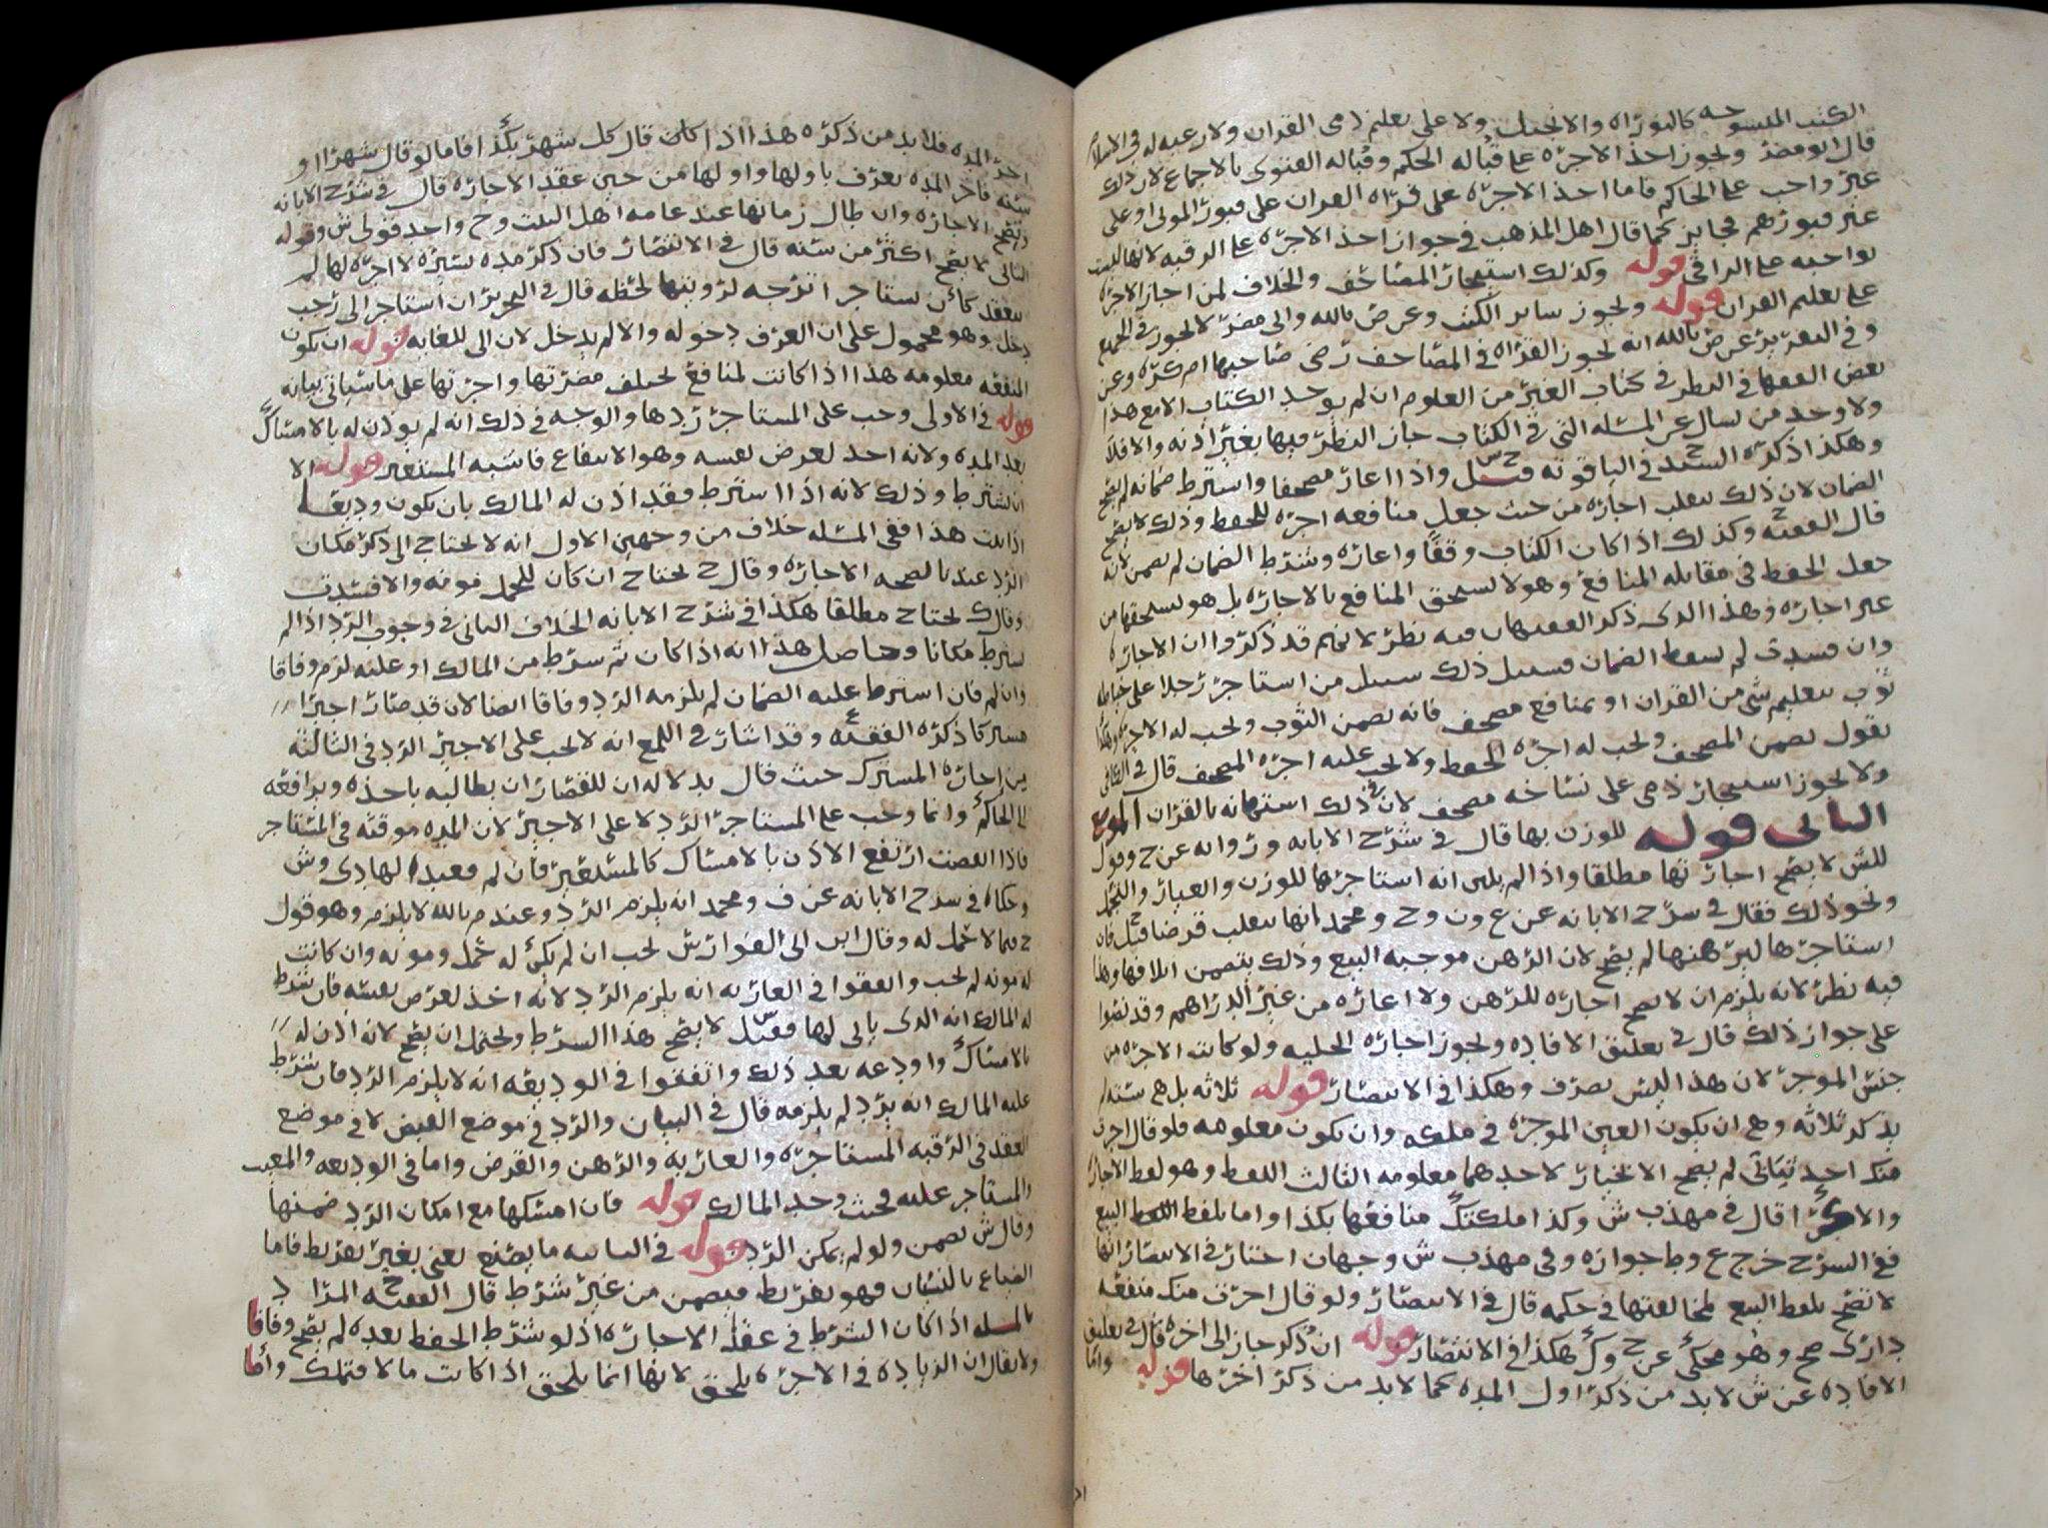 الكتب المنسوخه كالتوراه والانجيل ولا على تعليم ذمى القران ولا رغبه له فى الاسلام
قال ابو مضر ولجوز اخذ الاجره على قباله الحكم وقباله الفتوى بالاجماع لان ذلك
غير واجب على الحاكم فاما اخذ الاجره على قراه القران على قبور المولى او على
غير قبورهم فجايز كما قال اهل المذهب فى جواز اخذ الاجره على الرقيه لانها ليست
بواجبه على الراقى قوله وكذلك استيجار المصاحف والخلاف لمن اجاز الاجره
على تعليم القران قوله ولجوز ساير الكتب وعرض بالله والى مضر لا لجوز فى الجميع
وفى التقرير عرض بالله انه لجوز القراه فى المصاحف رضى صاحبها ام كره وعن
بعض الفقها فى النظر فى كتاب الغير من العلوم ان لم يوجد الكتاب الا مع هذا
ولا وجد من يسال عن المسله التى فى الكتاب جاز النظر فيها بغير اذنه والا فلا
وهكذا ذكره السيد فى الياقوته قيل واذا اعار مصحفا واشترط ضمانه لم يصح
الضمان لان ذلك ينقلب اجاره من حيث جعل منافعه اجره للحفظ وذلك لا يصح
قال الفقيه وكذلك اذا كان الكتاب وقفا واعاره وشرط الضمان لم يضمن لانه
جعل الحفظ فى مقابله المنافع وهو لا يستحق المنافع بالاجاره بل هو يستحقها من
غير اجاره وهذا الذى ذكر الفقيهان فيه نظر لانهم قد ذكروا ان الاجاره
وان فسدت لم يسقط الضمان فسبيل ذلك سبيل من استاجر رجلا على خياطه
ثوب بتعليم شى من القران او بمنافع مصحف فانه يضمن الثوب ولجب له الاجره وهنا
نقول يضمن المصحف ولجب له اجره الحفظ ولا لجب عليه اجره المصحف قال فى الكافى
ولا لجوز استيجار ذمى على نساخه مصحف لان فى ذلك استهانه بالقران الموضع
الثانى قوله للوزن بها قال فى شرح الابانه وروايه عن ح وقول
للش لا يصح اجارتها مطلقا واذا لم يبين انه استاجرها للوزن والعيار والتجمل
ولحو ذلك فقال فى شرح الابانه عن ع ون وح ومحمد انها تنقلب قرضا قيل فان
استاجرها ليرهنها لم يصح لان الرهن موجبه البيع وذلك يتضمن اتلافها وهذا
فيه نظر لانه يلزم ان لا يصح اجاره للرهن ولا اعاره من غير الدراهم وقد نصوا
على جواز ذلك قال فى تعليق الافاده ولجوز اجاره الحليه ولو كانت الاجره من
جنس الموجر لان هذا ليس بصرف وهكذا فى الانتصار قوله ثلاثه بل هى سته لم
يذكر ثلاثه وهى ان يكون العين الموجره فى ملكه وان يكون معلومه فلو قال اجرت
منك احد ثيابى لم يصح الا لخيار لاحدهما معلومه الثالث اللفظ وهو لفظ الاجاره
والاكرا قال فى مهذب ش وكذا ملكتك منافعها بكذا واما بلفظ اللفظ البيع
ففى الشرح خرج ع وط جوازه وفى مهذب ش وجهان اختار فى الانتصار انها
لا تصح بلفظ البيع لمخالفتها فى حكمه قال فى الانتصار ولو قال اجرت منك منفعه
دارى صح وهو محكى عن ح وك هكذا فى الانتصار قوله ان ذكر جاز الى اخره قال فى تعليق
الافاده عن ش لا بد من ذكر اول المده كما لا بد من ذكر اخرها قوله واما
اخر المده فلا بد من ذكره هذا اذا كان قال كل شهر بكذا فاما لو قال شهرا او
سنه فاخر المده يعرف باولها واولها من حين عقد الاجاره قال فى شرح الابانه
وتصح الاجاره وان طال زمانها عند عامه اهل البيت وح واحد قولى ش وقوله
الثانى لا يصح اكثر من سنه قال فى الانتصار فان ذكر مده يسيره لا اجره لها لم
ينعقد كأن يستاجر اترجه لرويتها لحظه قال فى التحرير ان استاجر الى رجب
دخل وهو محمول على ان العرف دخوله والا لم يدخل لان الى للغايه قوله ان يكون
المنفعه معلومه هذا اذا كانت لمنافع لختلف مضرتها واجرتها على ما سياتى بيانه
قوله فى الاولى وجب على المستاجر ردها والوجه فى ذلك انه لم يوذن له بالامساك
بعد المده ولانه اخذ لغرض نفسه وهو الانتفاع فاشبه المستعير قوله الا
ان يشترط وذلك لانه اذا اشترط فقد اذن له المالك بان يكون وديعه
اذا ثبت هذا ففى المسله خلاف من وجهين الاول انه لا لحتاج الى ذكر مكان
الرد عندنا لصحه الاجاره وقال ح لحتاج ان كان للحمل مونه والا فسدت
وقال ك لحتاج مطلقا هكذا فى شرح الابانه الخلاف الثانى فى وجوب الرد اذا لم
يشرط مكانا وحاصل هذا انه اذا كان ثم شرط من المالك او عليه لزم وفاقا
وان لم فان اشترط عليه الضمان لم يلزمه الرد وفاقا ايضا لان قد صار اجيرا
مشتركا ذكره الفقيه وقد اشار فى اللمع انه لا لجب على الاجير الرد فى الثالثه
من اجاره المشترك حيث قال بدلاله ان للقصار ان يطالبه باخذه ويرافعه
الى الحاكم وانما وجب على المستاجر الرد لا على الاجير لان المده موقته فى المستاجر
فاذا انقضت ارتفع الاذن بالامساك كالمستعير فان لم فعند الهادى وش
وحكاه فى شرح الابانه عن ف ومحمد انه يلزم الرد وعند م بالله لا يلزم وهو قول
ح فيما لا حمل له وقال ابن ابى الفوارس لجب ان لم يكن له حمل ومونه وان كانت
له مونه لم لجب واتفقوا فى العاريه انه يلزم الرد لانه اخذ لغرض نفسه فان شرط
له المالك انه الذى ياتى لها فقيل لا يصح هذا الشرط ولحتمل ان يصح لانه اذن له
بالامساك واودعه بعد ذلك واتفقوا فى الوديعه انه لا يلزم الرد فان شرط
عليه المالك انه يرد لم يلزمه قال فى البيان والرد فى موضع القبض لا فى موضع
العقد فى الرقبه المستاجره والعاريه والرهن والقرض واما فى الوديعه والمعيب
والمستاجر عليه فحيث وجد المالك قوله فان امسكها مع امكان الرد ضمنها
وقال ش يضمن ولو لم يمكن الرد قوله فى الثانيه ما يصنع يعنى بغير تفريط فاما
الضياع بالنسيان فهو تفريط فيضمن من غير شرط قال الفقيه المراد
بالمسله اذا كان الشرط فى عقد الاجاره اذ لو شرط الحفظ بعده لم يصح وفاقا
ولا يقال ان الزياده فى الاجره يلحق لانها انما يلحق اذا كانت مالا فتملك واما